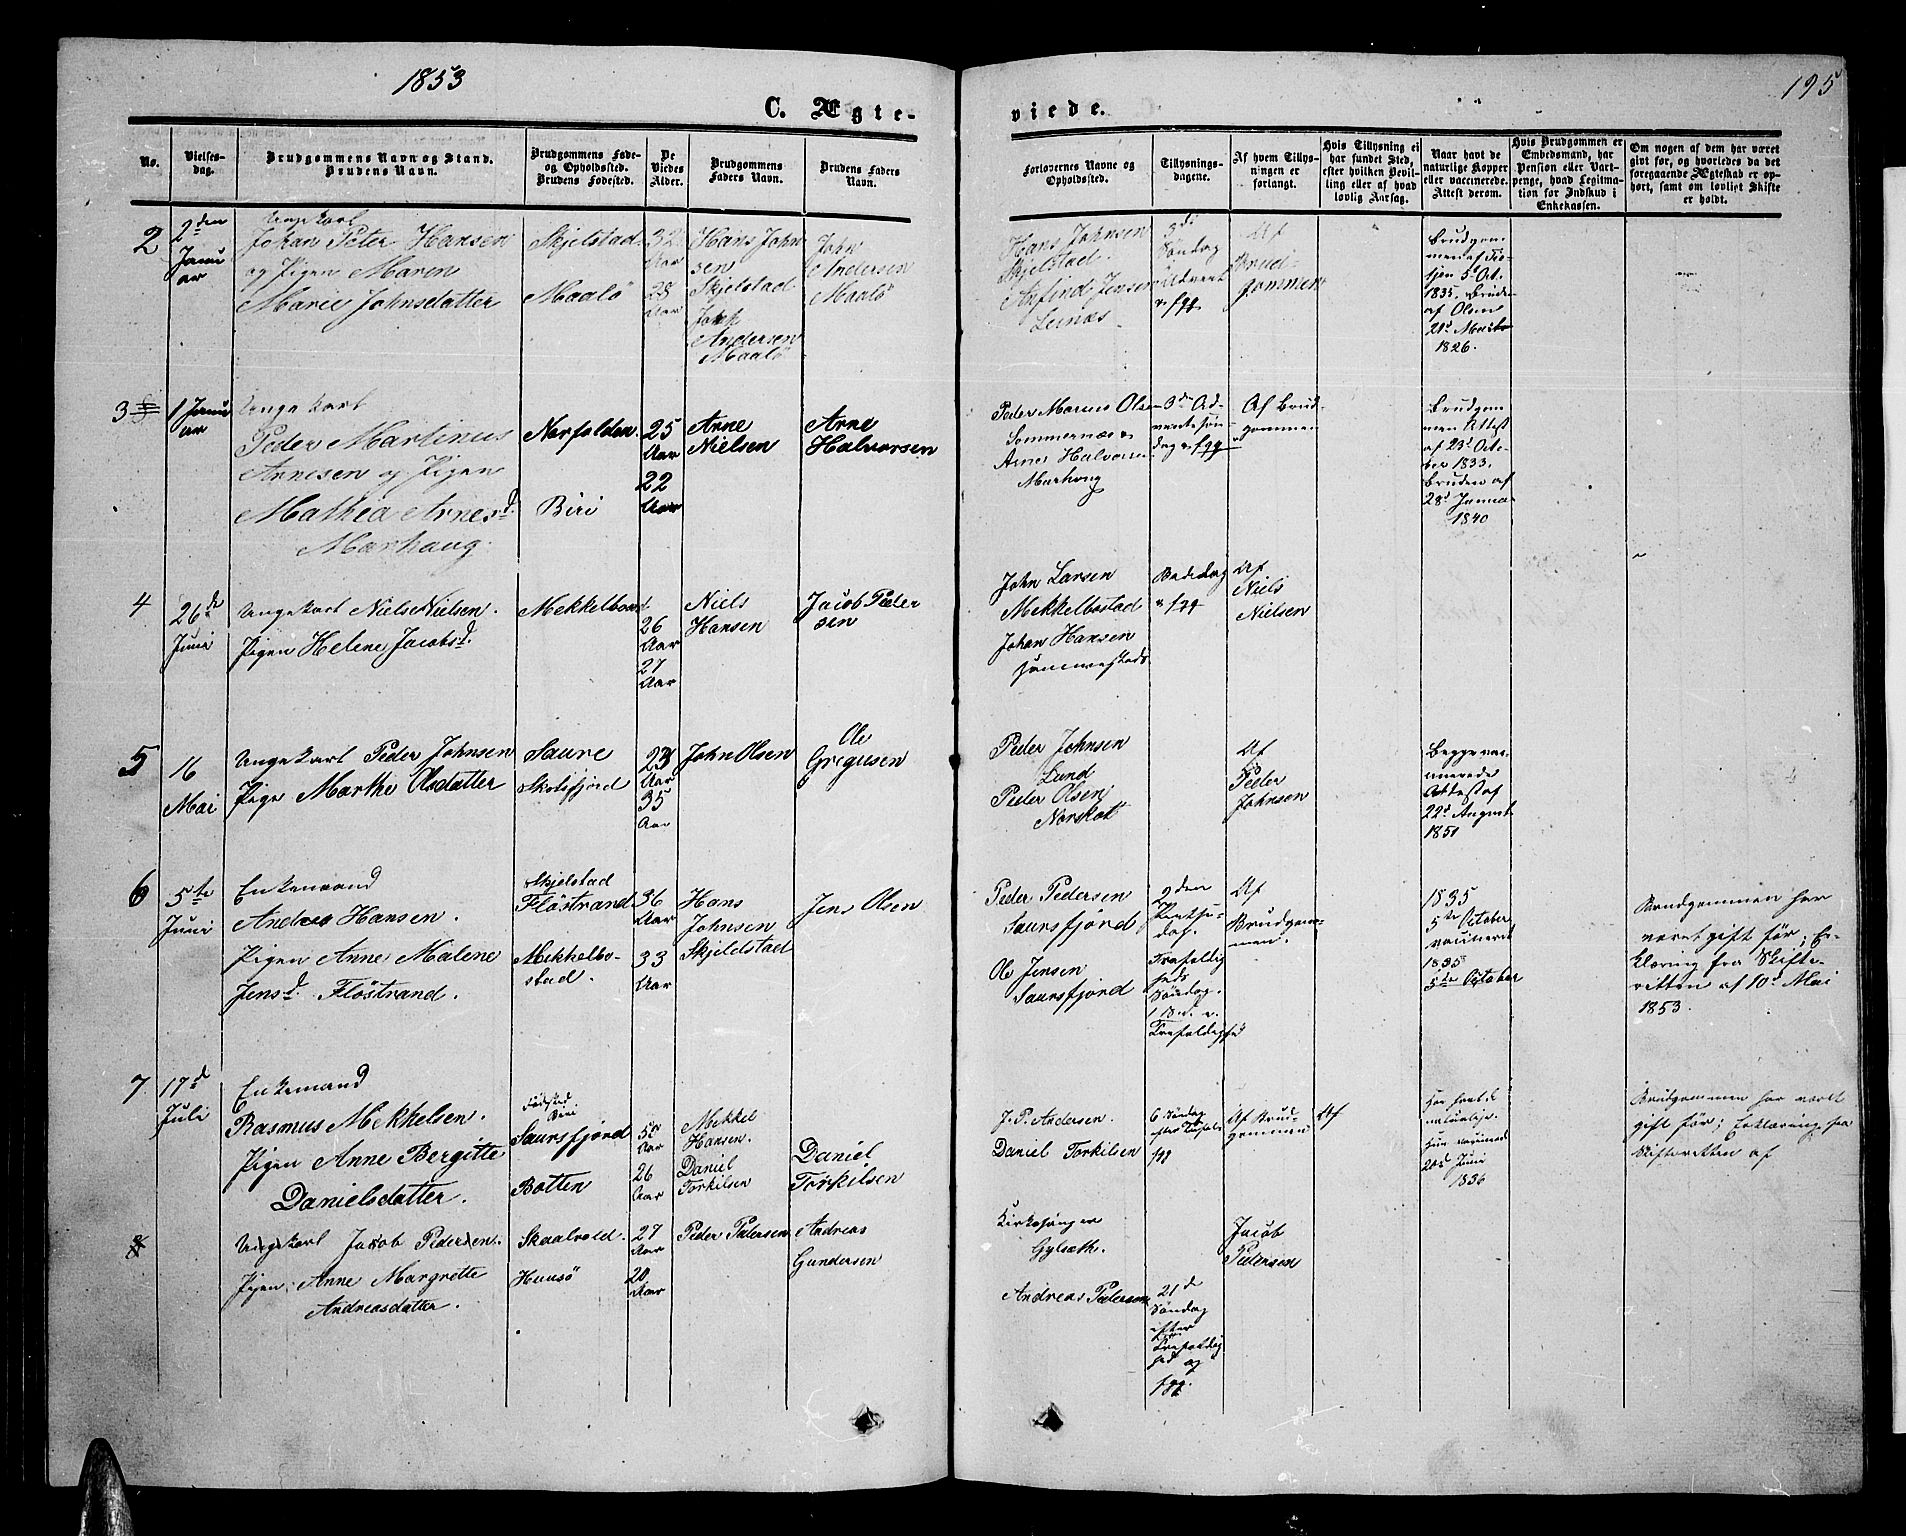 1853
195
C. Ægte-
viede.
No.
Vielses-
dag.
Brudgommens Navn og Stand.
Brudens Navn.
Brudgommens Føde-
og Opholdssted.
Brudens Fødested.
De
Viedes
Alder.
Brudgommens
Faders Navn.
Brudens Faders
Navn.
Forlovernes Navne og
Opholdssted.
Tillysnings-
dagene.
Af hvem Tillys-
ningen er
forlangt.
Hvis Tillysning ei
har fundet Sted,
efter hvilken Bevil-
ling eller af hvad
lovlig Aarsag.
Naar havt de
naturlige Kopper
eller vaccinerede.
Attest derom.
Hvis Brudgommen er
Embedsmand, har
Pension eller Vart-
penge, hvad Legitima-
tion for Indskud i
Enkekassen.
Om nogen af dem har været
givt før, og hvorledes da det
foregaaende Ægteskab er op-
hørt, samt om lovligt Skifte
er holdt.
2
2den
Janu
ar
Ungekarl
Johan Peter Hansen
og Pigen Maren
Marie Johnsdatter
Skjelstad
Maalö
32
Aar
28
Aar
Hans John
sen
Skjelstad
John
Andersen
Maalö
John
Andersen
Maalö
Hans Johnsen
Skjelstad.
Arfind Jensen
Leinæs
3di
Söndag
Advent
&amp; fgg
Af
Brud-
gommen
Brudgom-
men af
5te Oct.
1835, Bruden
af Olsen
21d Marts
1826.
3
1 Janu
ar
Ungekarl
Peder Martinus
Arnesen og Pigen
Mathea Arnesd.
Marhaug.
Norfolden
Biri
25
Aar
22
Aar
Arne
Nielsen
Arne
Halvorsen
Peder Marius Olsen
Sommernæs &amp;
Arne Halvorsen
Marhaug
3de Ad-
ventssön-
dag &amp; fgg
Af Brud-
gommen
Brudgom
men Attest
af 23d Octo-
ber 1833.
Bruden af
28d Janua
1840
4
26de
Juni
Ungekarl Niels Nielsen.
Pigen Helene Jacobsd.
Mekkelbost
26
Aar
27
Aar
Niels
Hansen
Jacob Peder
sen
John Larsen
Mekkelbostad
Johan Hansen
Bededag
&amp; fgg
Af
Niels
Nielsen
5
16
Mai
Ungekarl Peder Johnsen
Pige Marthe Olsdatter
Saure
Skotsfjord
23
Aar
35
Aar
John Olsen
Ole
Gregusen
Peder Johnsen
Lund
Peder Olsen
Norskot
Af
Peder
Johnsen
Begge vac-
cinerede
Attest af
22d August
1851
6
5te
Juni
Enkemand
Andreas Hansen.
Pigen Anne Malene
Jensd. Flöstrand.
Skjelstad
Flöstrand
Mekkelbo-
stad.
36
Aar
33
Aar
Hans
Johnsen
Skjeldstad
Jens Olsen
Peder Pedersen
Saursfjörd
Ole Jensen
Saursfjörd
2den
Pentse-
dag.
Trefoldig
heds
Söndag.
1 S. e.
Trefoldighed
Af
Brudgom-
men.
1835
5te October
vaccineret
1835
5te October
Brudgommen har
været gift før; Er-
klæring fra Skifte-
retten af 10d Mai
1853.
7
17d
Juli
Enkemand
Rasmus Mekkelsen.
Pigen Anne Bergitte
Danielsdatter.
Födested
Biri
Saursfjord
Botten
50
Aar
26
Aar
Mekkel
Hansen.
Daniel
Torkilsen
Daniel
Torkilsen
J. P. Andersen.
Daniel Torkilsen
6 Söndag
efter Trefold.
fgg
Af Brud-
gommen
Af
Han havt de
naturlige.
Hun vaccineret
20d Juni
1836
Brudgommen har været
gift før; Erklæring fra
Skifteretten af
8
Ungekarl Jacob Pedersen.
Pigen Anne Margrette
Andreasdatter.
Skaalvold.
Huusö
27
Aar
20
Aar
Peder Pedersen
Andreas
Gundersen
Kirkesanger
Gylseth.
Andreas Pedersen
21d
Söndag
efter
Trefoldig
hed og
fgg.
Jacob
Pedersen